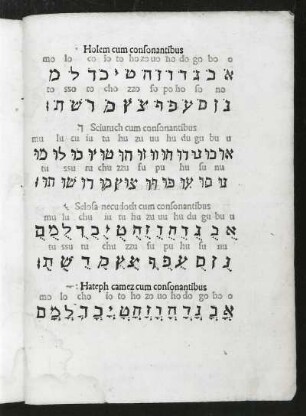 Holem cum consonantibus
mo lo co io to ho zo uo ho do go bo o
א בֹ גֹ דֹ הֹ וֹ זֹ חֹ טֹ יֹ כֹ לֹ מֹ
to sso ro cho zzo fo po ho so no
נֹ סֹ עֹ פֹ צֹ קֹ רֹ שֹ תֹ
Sciurech cum consonantibus
mu lu cu iu tu hu zu uu hu du gu bu u
או בו גו דו הו וו זו חו טו יו כו לו מו
tu ssu ru chu zzu fu pu hu su nu
נו סו עו פו צו קו רו שו תו
Selosa necudoth cum consonantibus
mu lu chu iu tu hu zu uu hu du gu bu u
אֻ בֻ גֻ דֻ הֻ וֻ זֻ חֻ טֻ יֻ כֻ לֻ מֻ
tu ssu ru chu zzu fu pu hu su nu
נֻ סֻ עֻ פֻ צֻ קֻ רֻ שֻ תֻ
Hateph camez cum consonantibus
mo lo cho io to ho zo uo ho do go bo o
אֳ בֳ גֳ דֳ הֳ וֳ זֳ חֳ טֳ יֳ כֳ לֳ מֳ